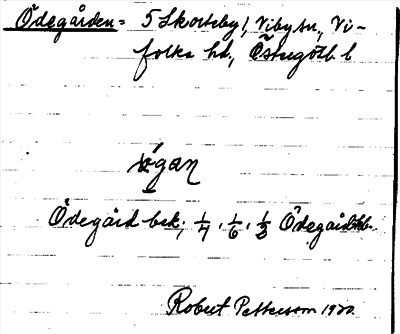 Ödegården = 5 Skorteby, Viby sn., Vi-
folka hd, Östergötl. l
ǿgan
Ödegård bek., 1/4, 1/6, 1/3 Ödegård
Robert Pettersson 1920.